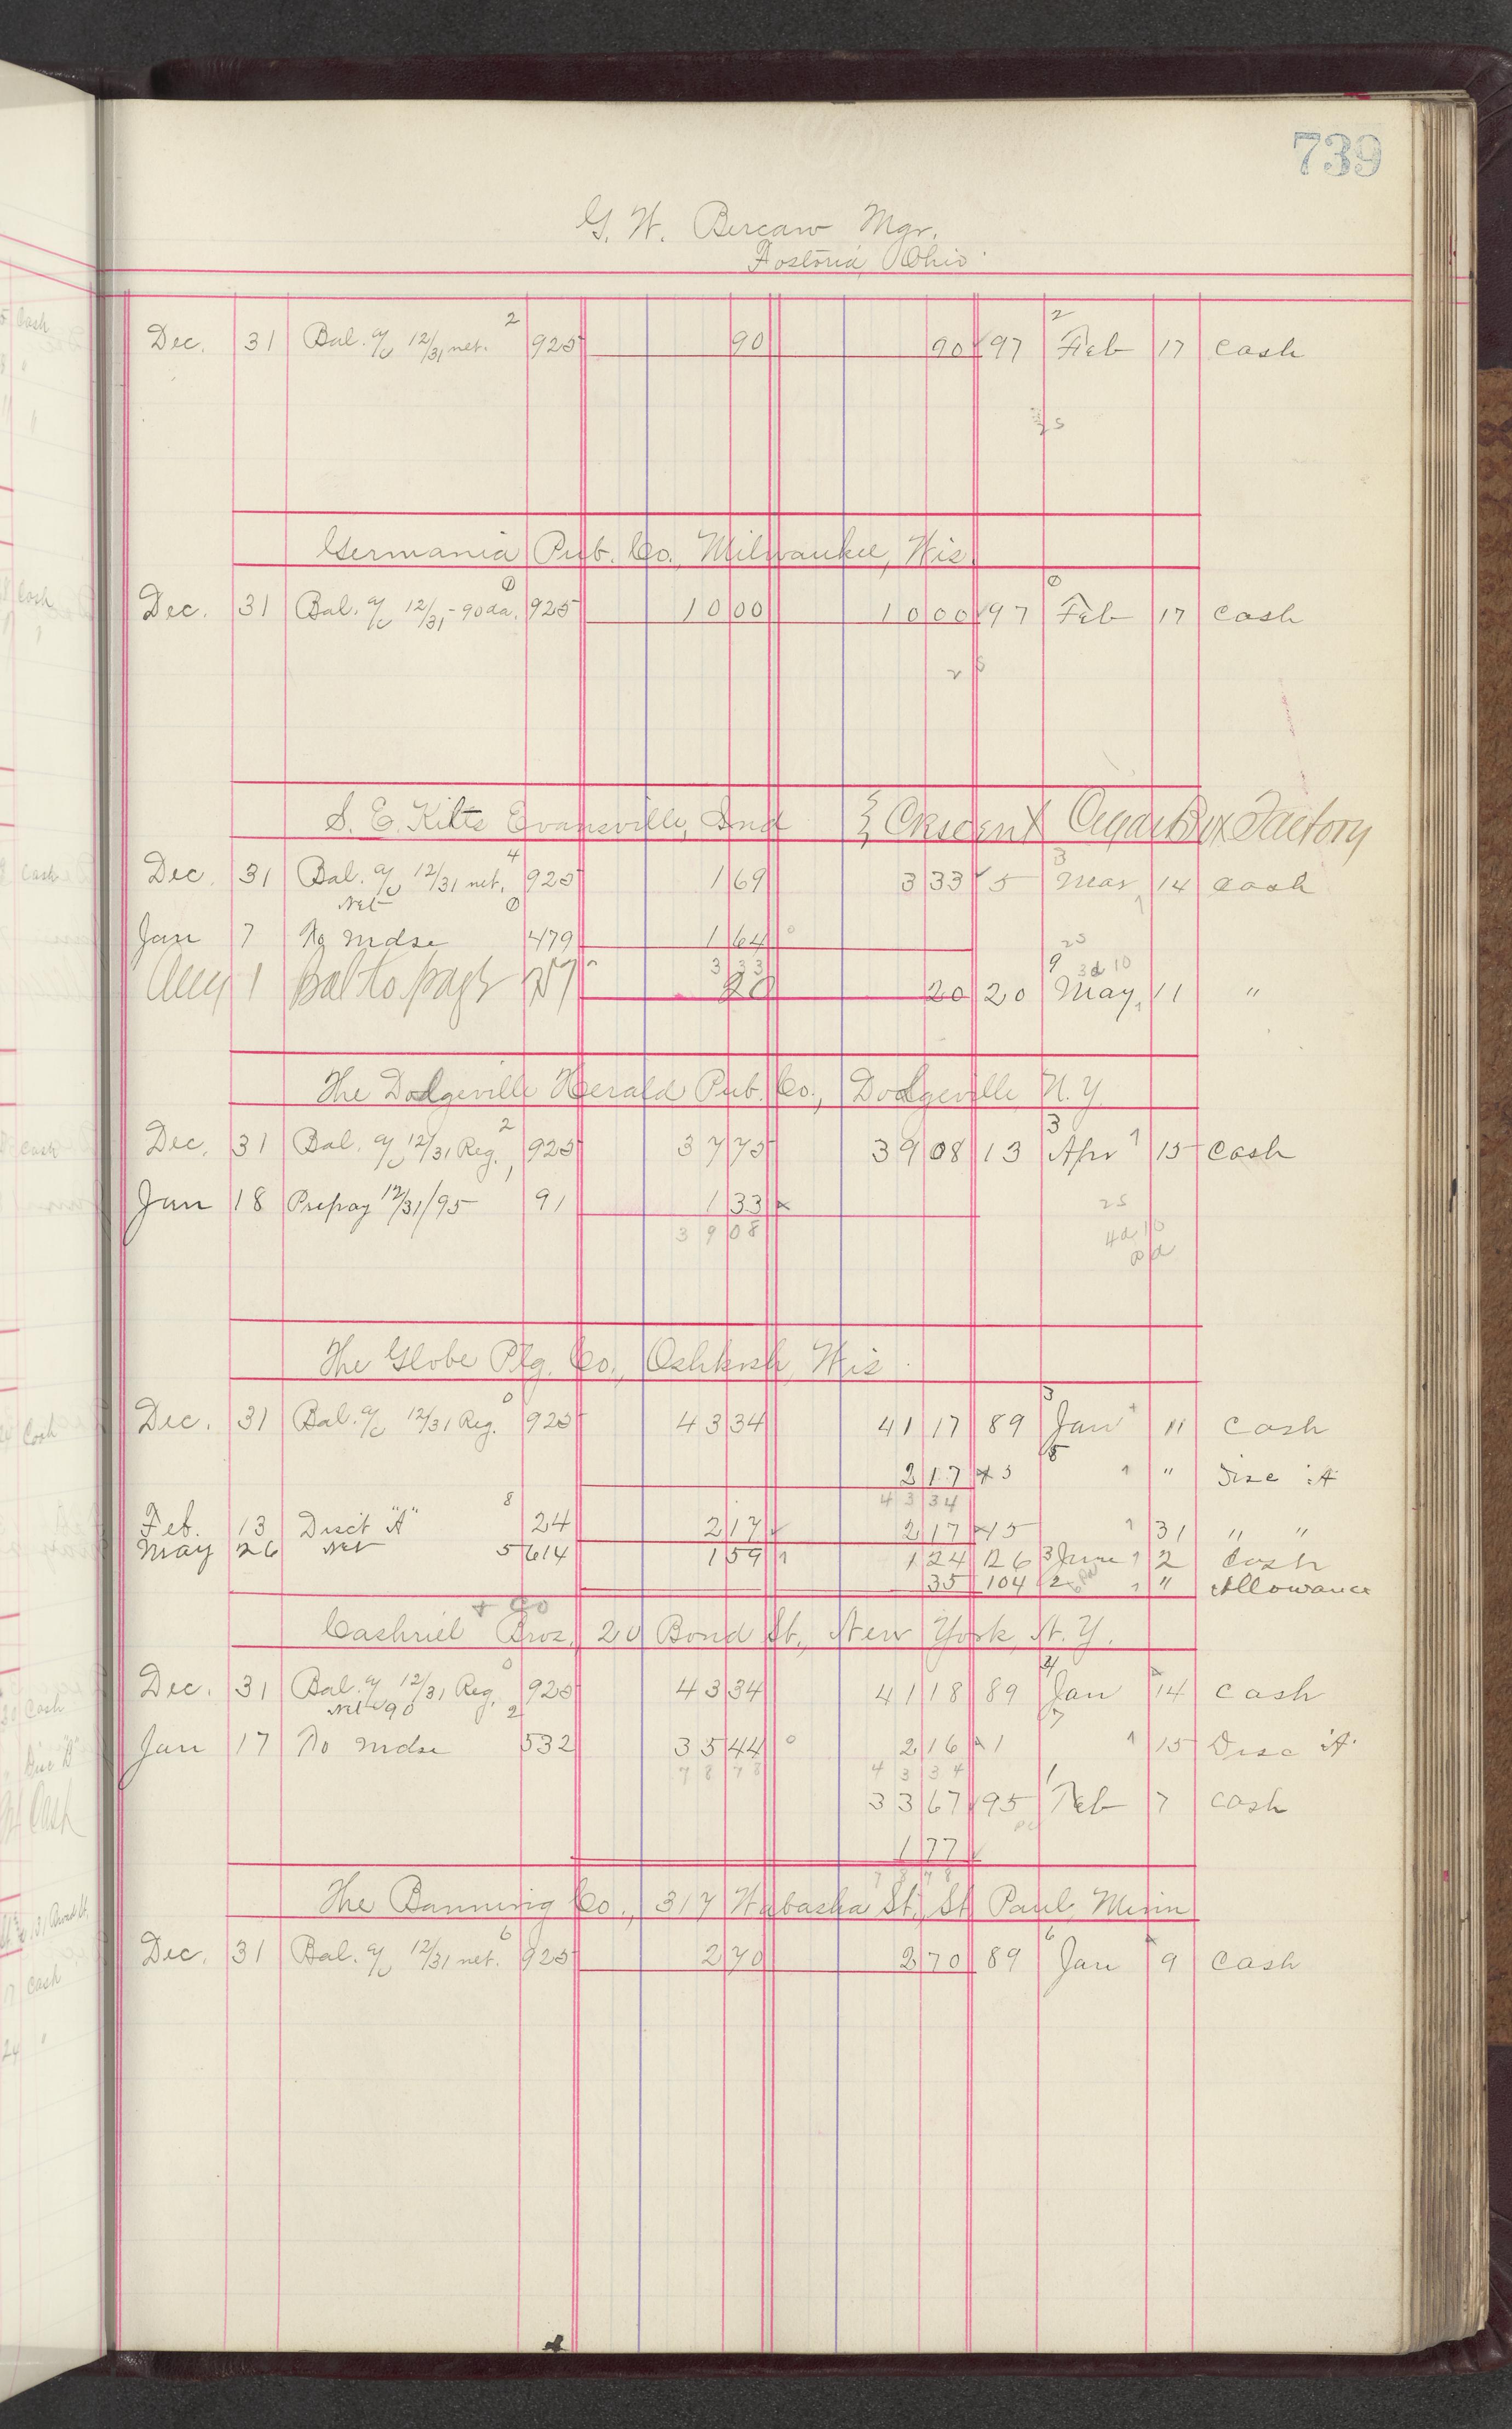 739
G. W. Bercaw Mgr.
Fostoria, Ohio
Dec. 31 Bal. a/c 12/31 net. 2 925 90 90 97 2 Feb 17 Cash
Germania Pub. Co. Milwaukee, Wis.
Dec. 31 Bal. a/c 12/31 - 90 da. 0 925 10 00 10 00 97 0 Feb 17 Cash
S. E. Kilts Evansville, Ind
Dec. 31 Bal. a/c 12/31 net. 4 925 1 69 3 33 5 3 Mar 14 Cash
Net 0
Jan 7 To mdse 479 1 64
3 33
Aug 1 Bal to page 20 20 20 9 May 11 "
The Dodgeville Herald Pub. Co., Dodgeville N. Y.
Dec. 31 Bal. a/c 12/31 Reg. 2 925 37 75 39 08 13 3 Apr 15 Cash
Jan 18 Prepay 12/31/95 91 1 33
39 08
The Globe Ptg. Co., Oshkosh, Wis.
Dec. 31 Bal. a/c 12/31 Reg. 0 925 43 34 41 17 89 3 Jan 11 Cash
2 17 3 " Disc "A"
43 34
Feb. 13 Disct "A" 8 24 2 17 2 17 15 31 " "
May 26 Net 5 614 1 59 1 24 126 3 June 2 Cash
35 104 2 " Allowance
& Co
Cashriel Bros. 20 Bond St., New York, N. Y.
Dec. 31 Bal. a/c 12/31 Reg. 0 925 43 34 41 18 89 Jan 14 Cash
Net 90 2
Jan 17 To mdse 532 35 44 2 16 1 15 Disc "A"
78 78 43 34
33 67 95 1 Feb 7 Cash
1 77
78 78
The Banning Co., 317 Wabasha St., St. Paul, Minn
Dec. 31 Bal. a/c 12/31 net. 6 925 2 70 2 70 89 6 Jan 9 Cash